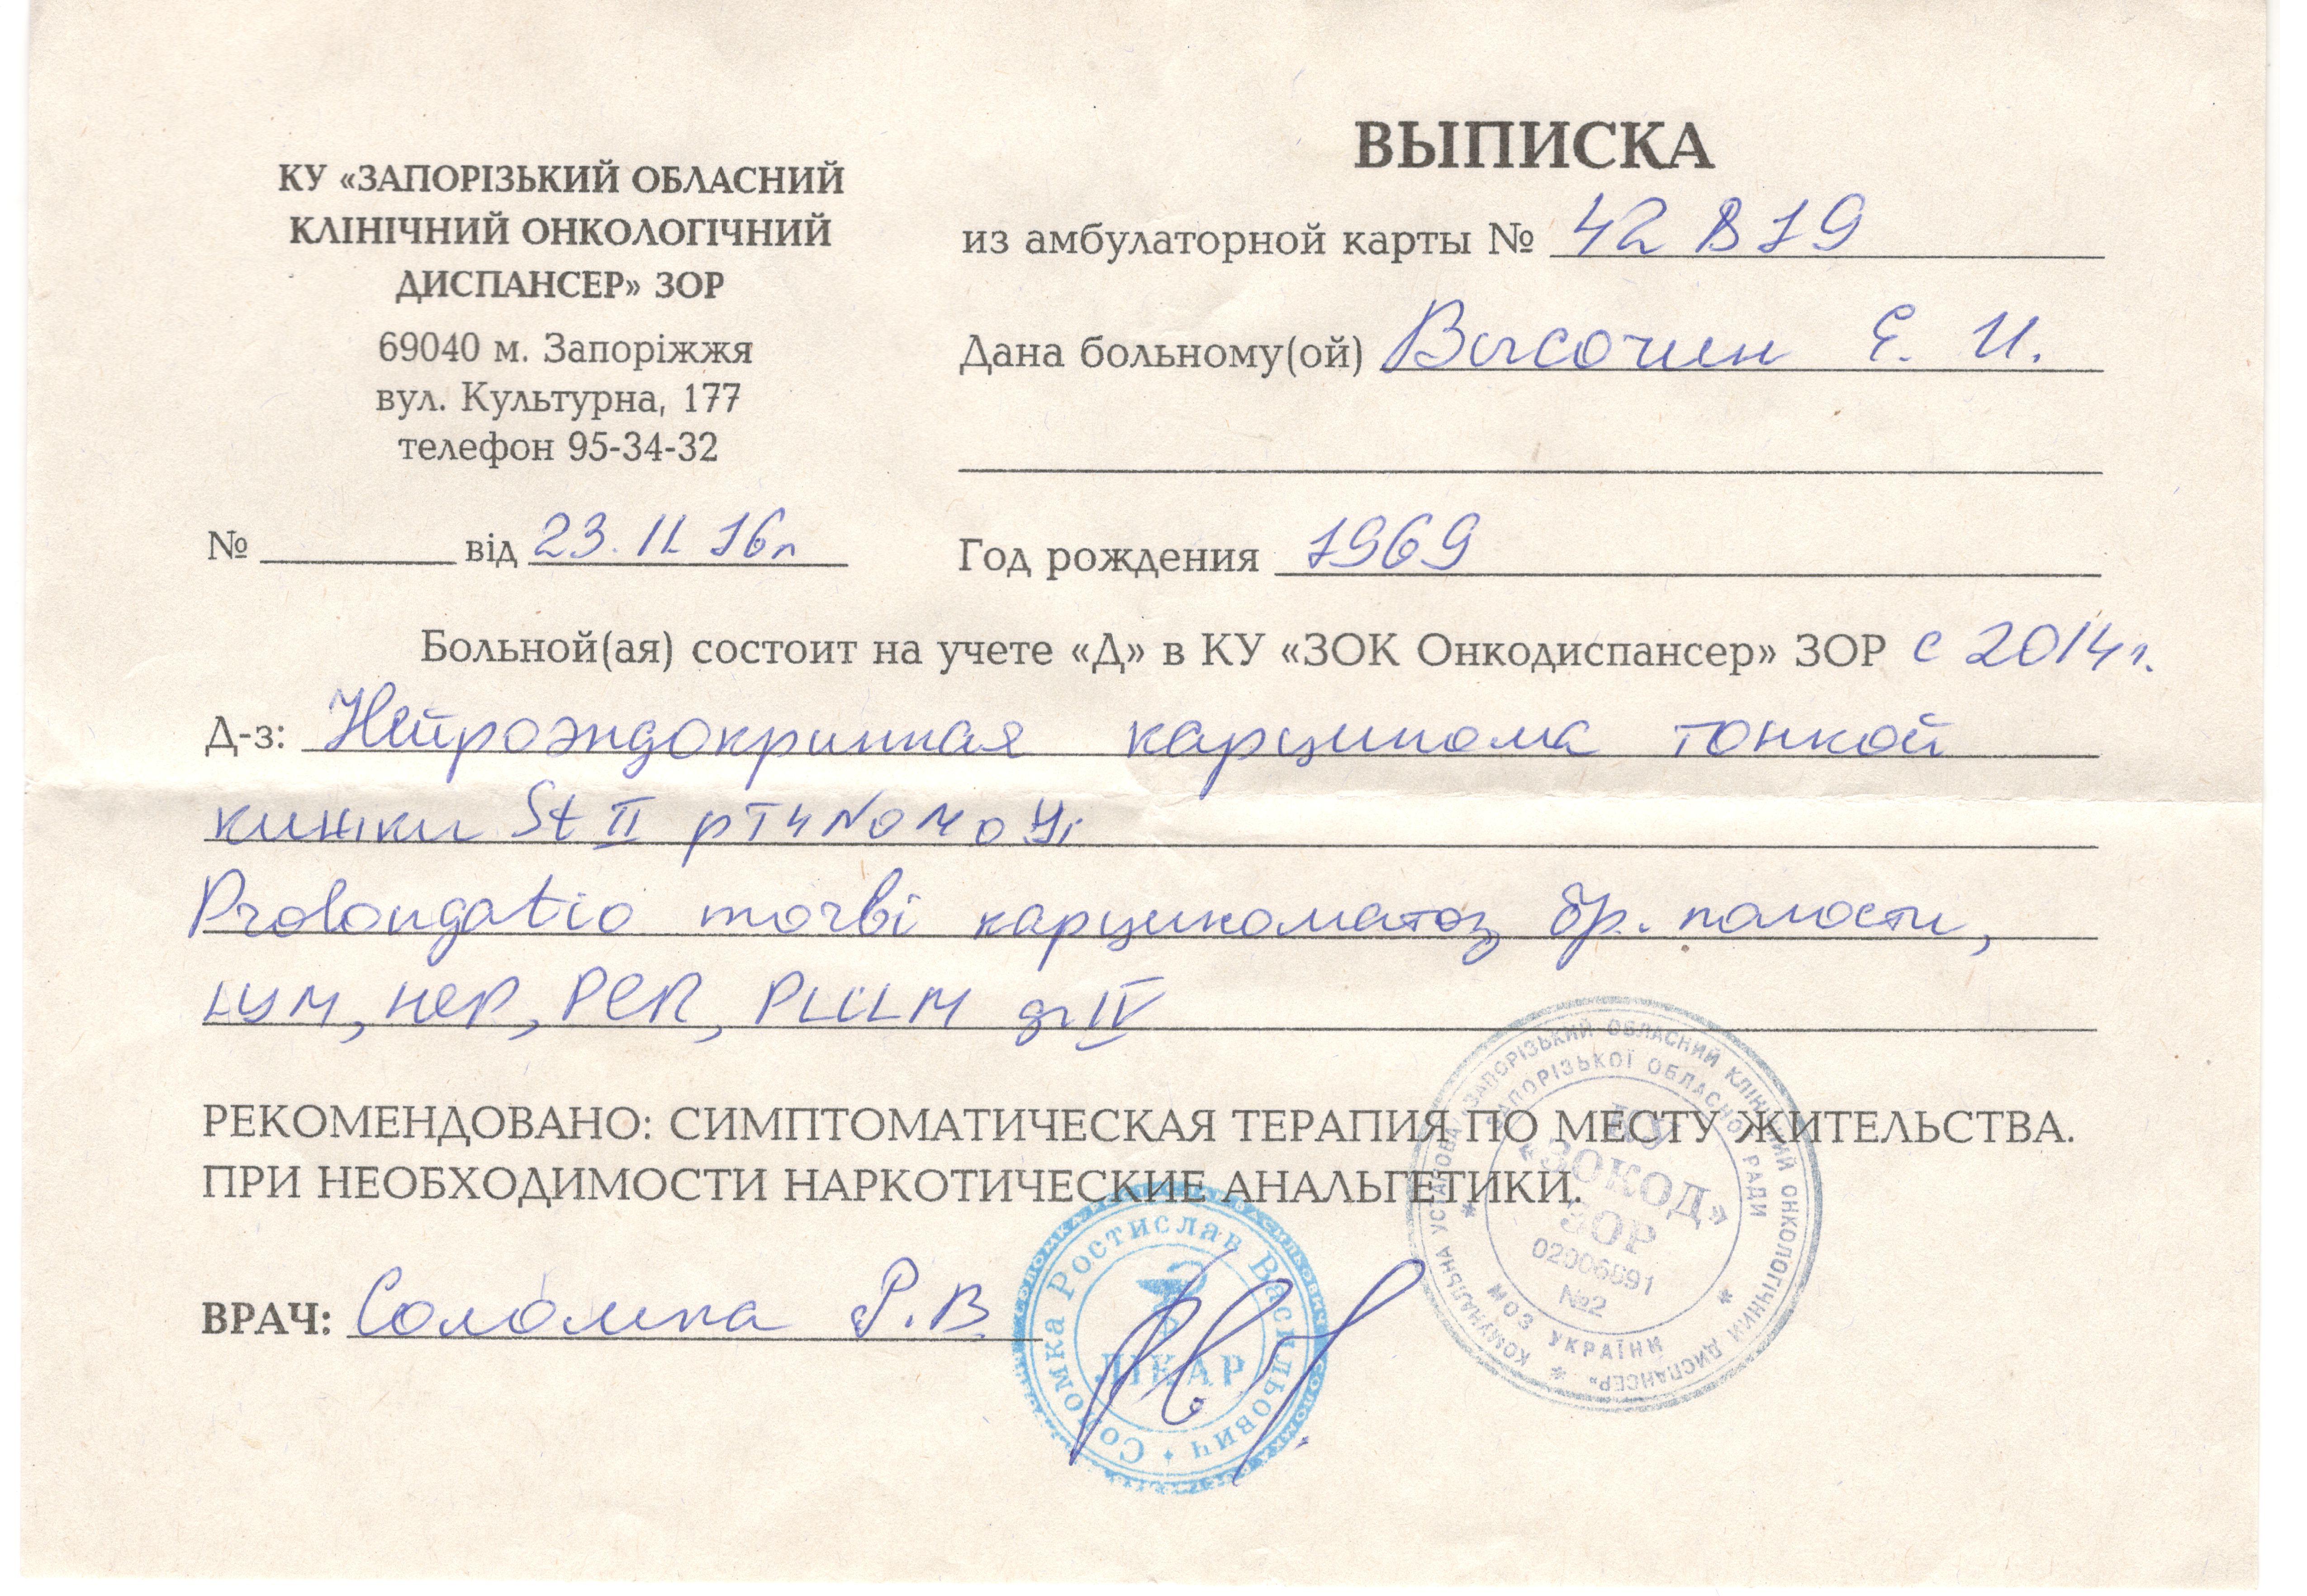 ВЫПИСКА
КУ «ЗАПОРІЗЬКИЙ ОБЛАСНИЙ
КЛІНІЧНИЙ ОНКОЛОГІЧНИЙ
ДИСПАНСЕР» ЗОР
69040 м. Запоріжжя
вул. Культурна, 177
телефон 95-34-32
№ від 23. 11. 16г
из амбулаторной карты № 42 В 19
Дана больному(ой) Высочин Е. И.
Год рождения 1969
Больной(ая) состоит на учете «Д» в КУ «ЗОК Онкодиспансер» ЗОР с 2014 г.
Д-з: Нейроэндокринная карцинома тонкой
кишки St II pT4N0M0
Prolongatio morbi карциноматоз бр. полости,
LYM, HEP, PER, PULM gr IV
РЕКОМЕНДОВАНО: СИМПТОМАТИЧЕСКАЯ ТЕРАПИЯ ПО МЕСТУ ЖИТЕЛЬСТВА.
ПРИ НЕОБХОДИМОСТИ НАРКОТИЧЕСКИЕ АНАЛЬГЕТИКИ.
ВРАЧ: Соломка Р.В.
Соломка Ростислав Васильович
ЛІКАР
КОМУНАЛЬНА УСТАНОВА «ЗАПОРІЗЬКИЙ ОБЛАСНИЙ КЛІНІЧНИЙ ОНКОЛОГІЧНИЙ ДИСПАНСЕР»
ЗАПОРІЗЬКОЇ ОБЛАСНОЇ РАДИ
КУ
«ЗОКОД»
ЗОР
02006691
№2
МОЗ УКРАЇНИ